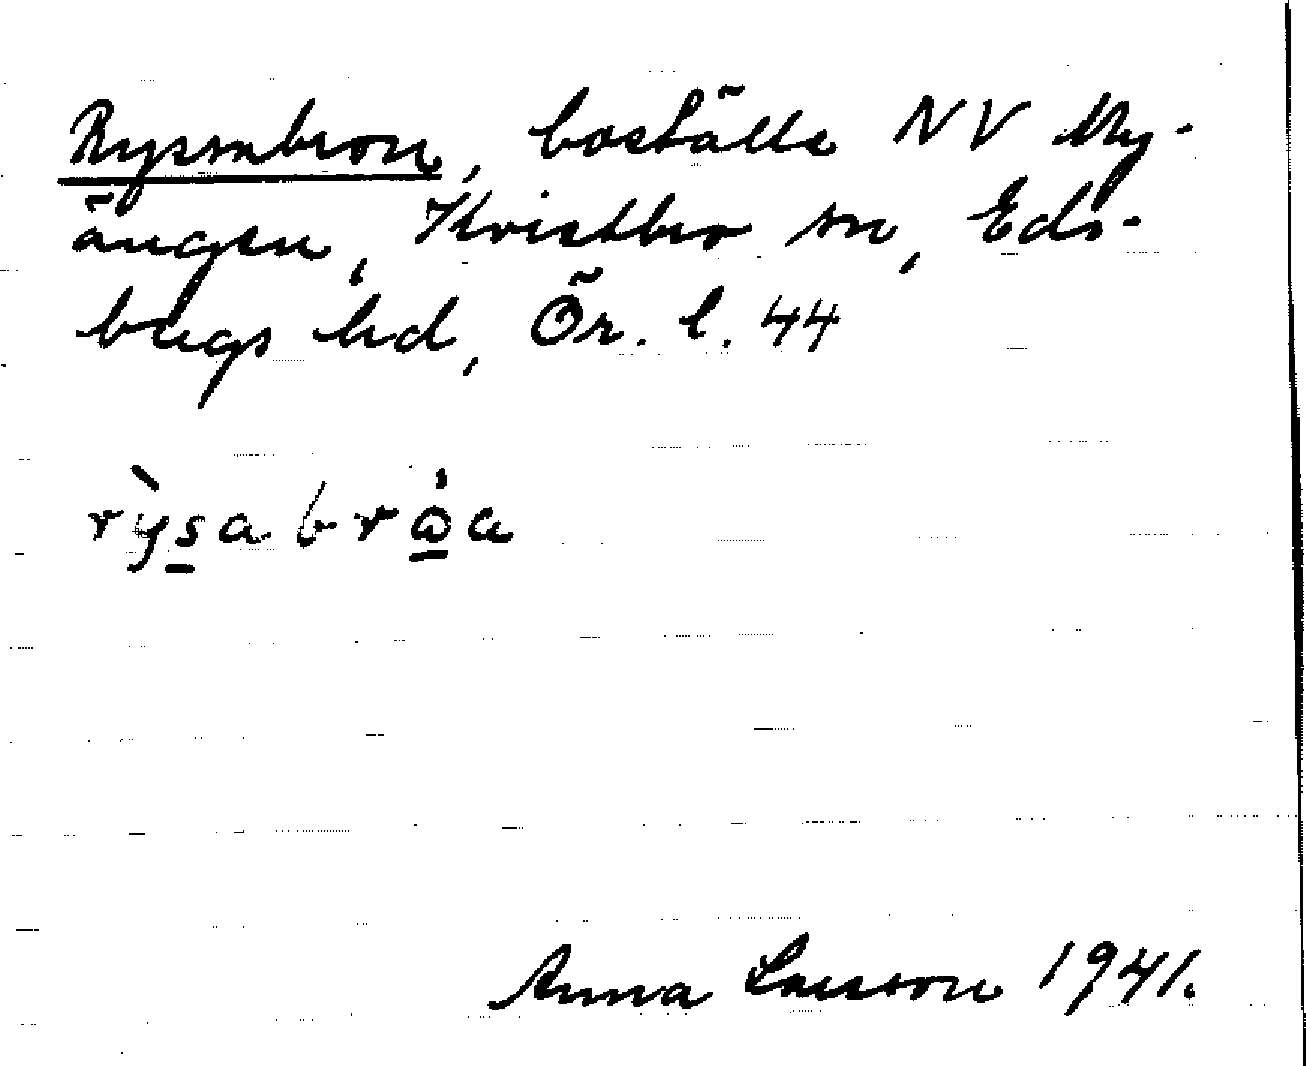 Ryssabron, boställe NV My-
ängen, Kvistbro sn, Eds-
bergs hd, Ör. l. 44
rỳsabrω̇a
Anna Larsson 1941.